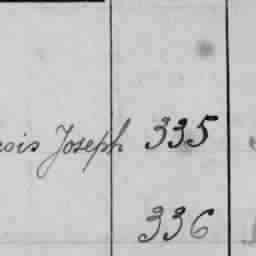 Joseph 335
336